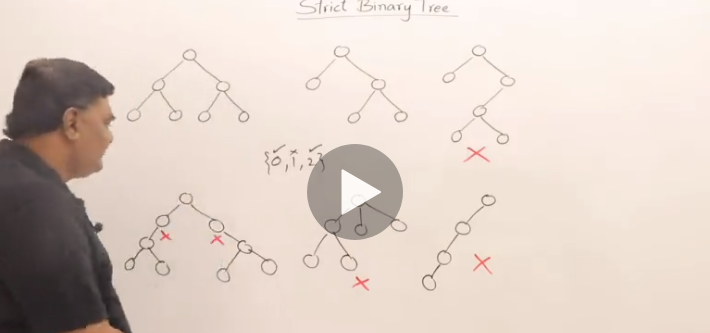 Strict Binary Tree
{0, 1, 2}